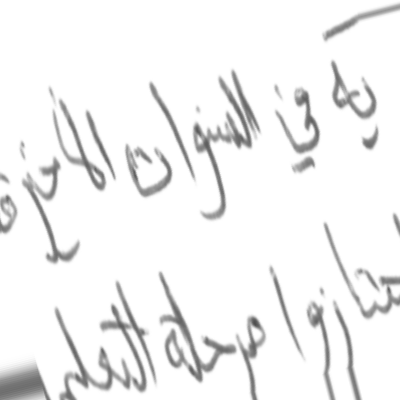 به في السنوات الأخيرة
اجتازوا مرحلة التعليم